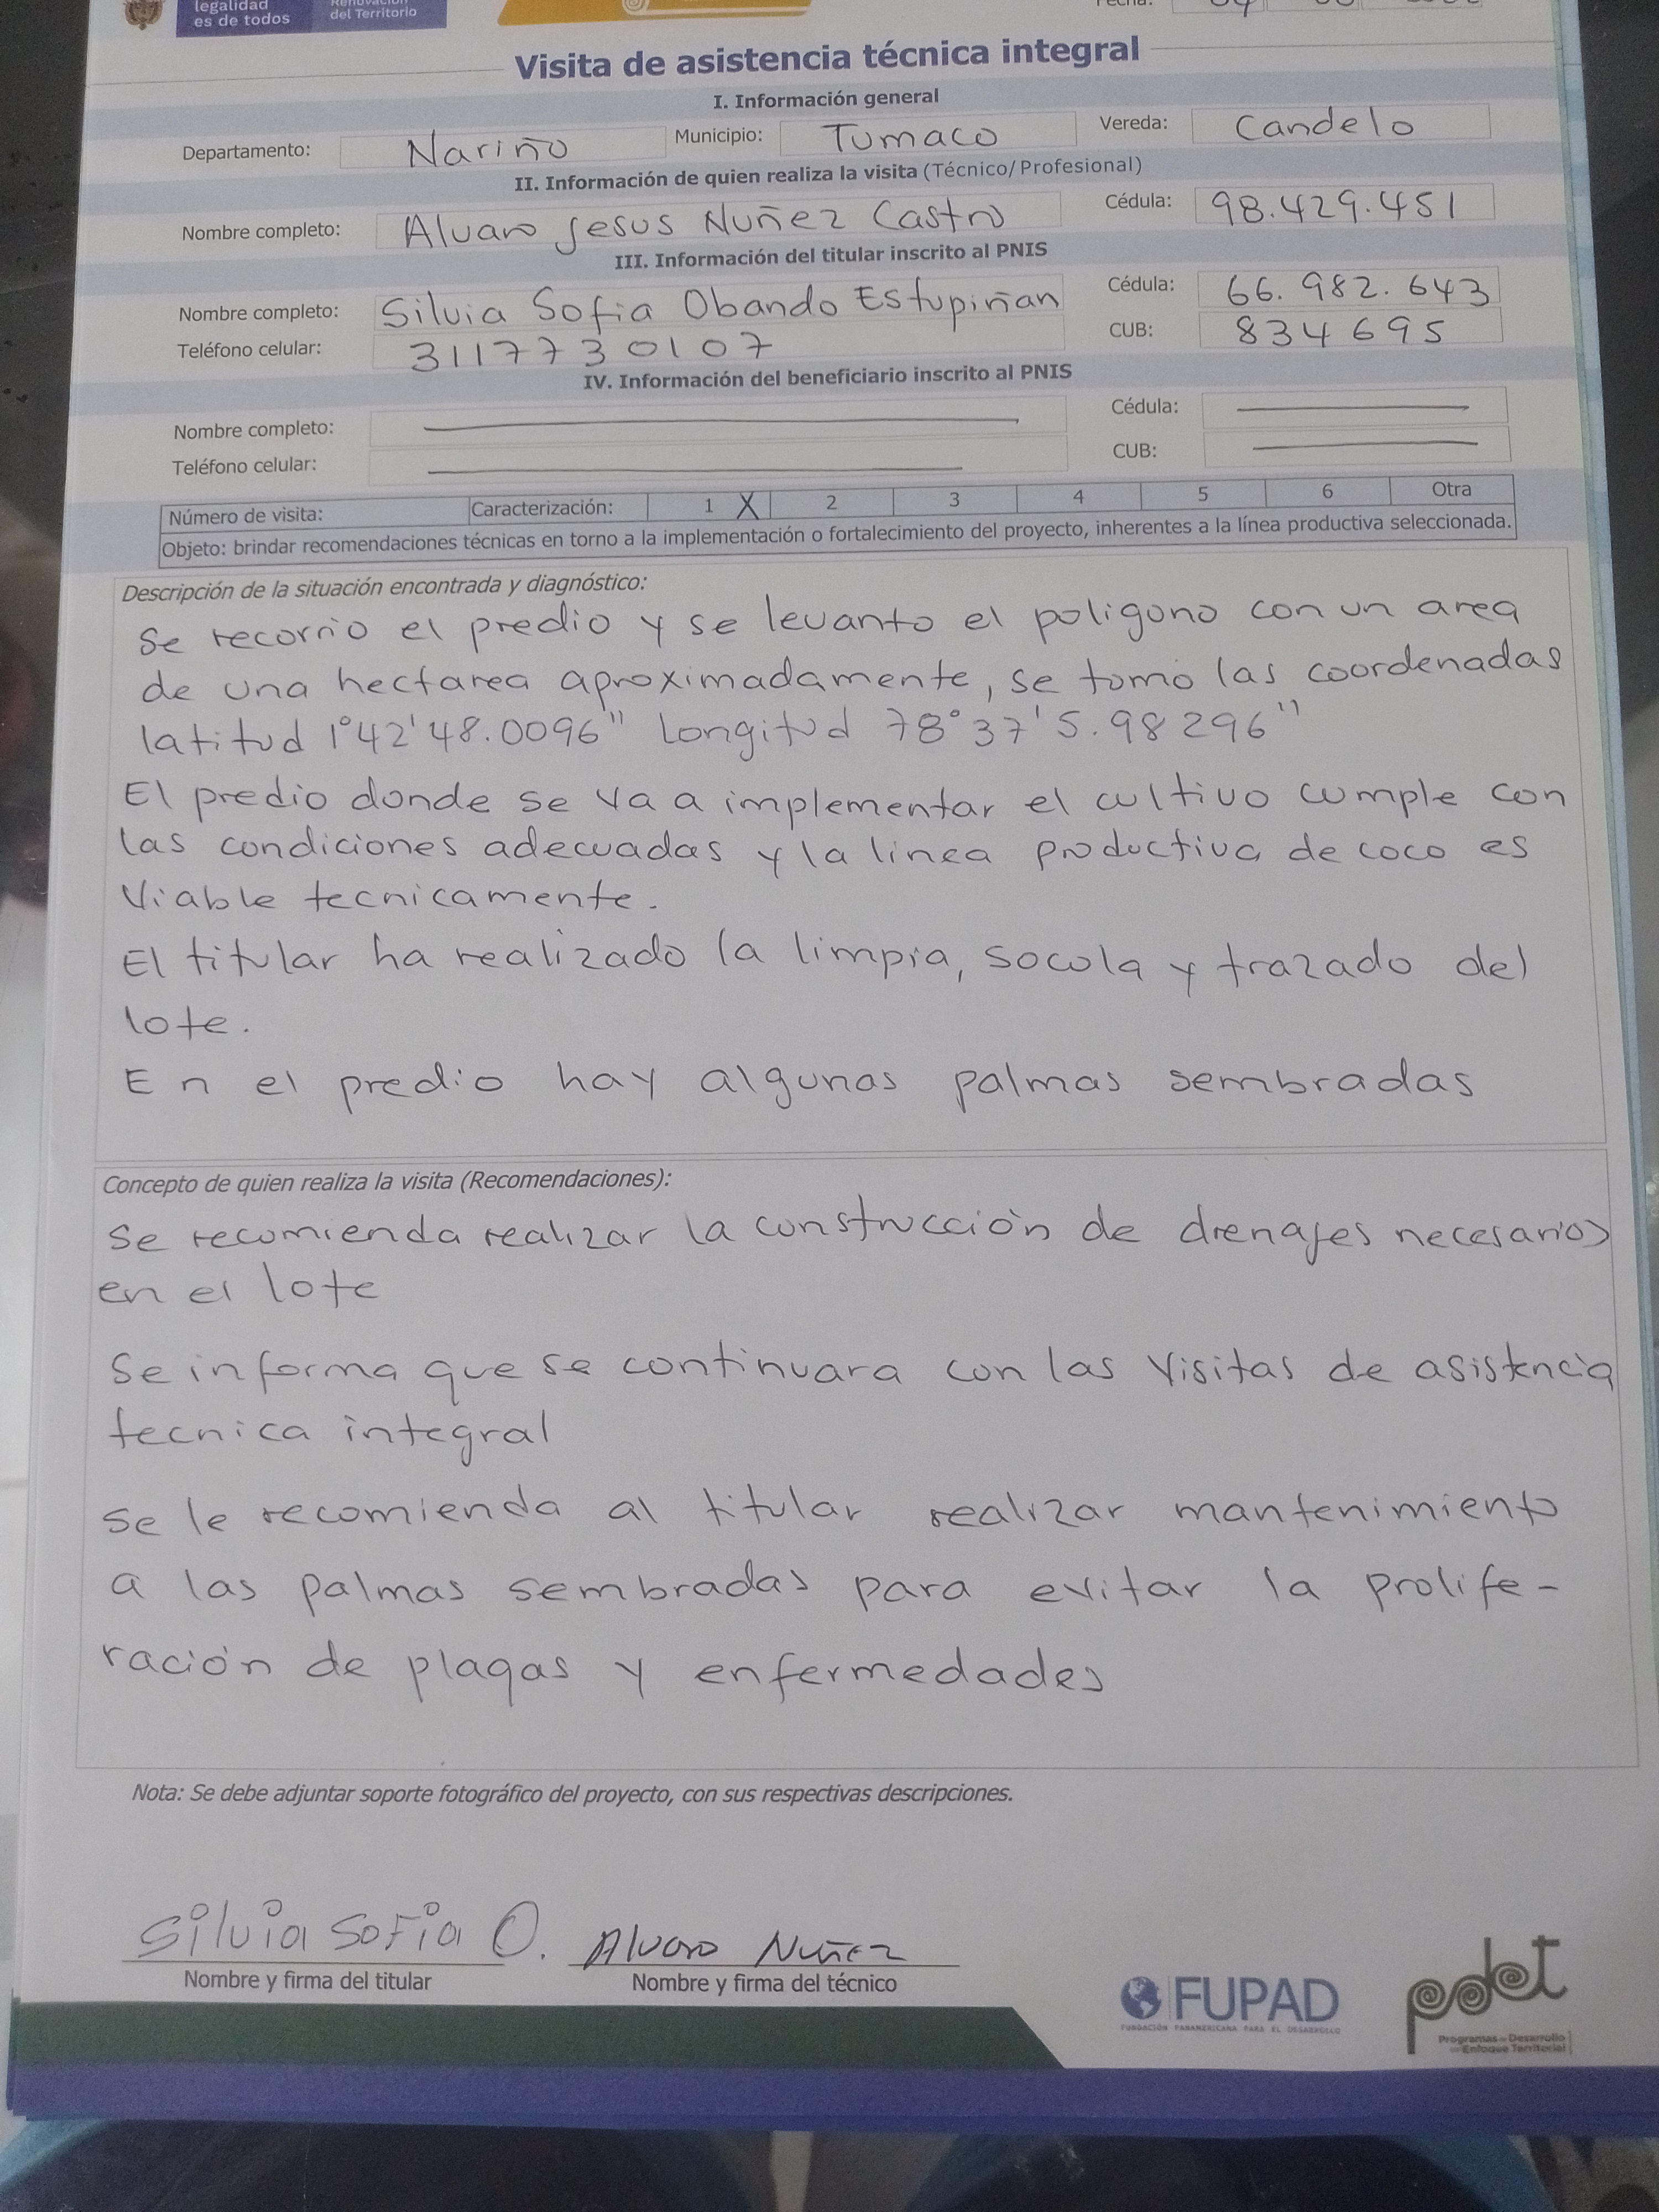 legalidad
es de todos
Renovación
del Territorio
Fecha:
Visita de asistencia técnica integral
I. Información general
Departamento: Nariño Municipio: Tumaco Vereda: Candelo
II. Información de quien realiza la visita (Técnico/Profesional)
Nombre completo: Alvaro Jesus Nuñez Castro Cédula: 98.429.451
III. Información del titular inscrito al PNIS
Nombre completo: Silvia Sofia Obando Estupiñan Cédula: 66.982.643
Teléfono celular: 3117730107 CUB: 834695
IV. Información del beneficiario inscrito al PNIS
Nombre completo: Cédula:
Teléfono celular: CUB:
Número de visita: Caracterización: 1 X 2 3 4 5 6 Otra
Objeto: brindar recomendaciones técnicas en torno a la implementación o fortalecimiento del proyecto, inherentes a la línea productiva seleccionada.
Descripción de la situación encontrada y diagnóstico:
Se recorrio el predio y se levanto el poligono con un area
de una hectarea aproximadamente, se tomo las coordenadas
latitud 1°42'48.0096" Longitud 78°37'5.98296"
El predio donde se va a implementar el cultivo cumple con
las condiciones adecuadas y la linea productiva de coco es
Viable tecnicamente.
El titular ha realizado la limpia, socola y trazado del
lote.
En el predio hay algunas palmas sembradas
Concepto de quien realiza la visita (Recomendaciones):
Se recomienda realizar la construcción de drenajes necesarios
en el lote
Se informa que se continuara con las visitas de asistencia
tecnica integral
Se le recomienda al titular realizar mantenimiento
a las palmas sembradas para evitar la prolife-
ración de plagas y enfermedades
Nota: Se debe adjuntar soporte fotográfico del proyecto, con sus respectivas descripciones.
Silvia Sofia O. Alvaro Nuñez
Nombre y firma del titular Nombre y firma del técnico
FUPAD
FUNDACIÓN PANAMERICANA PARA EL DESARROLLO
pdet
Programas de Desarrollo
con Enfoque Territorial